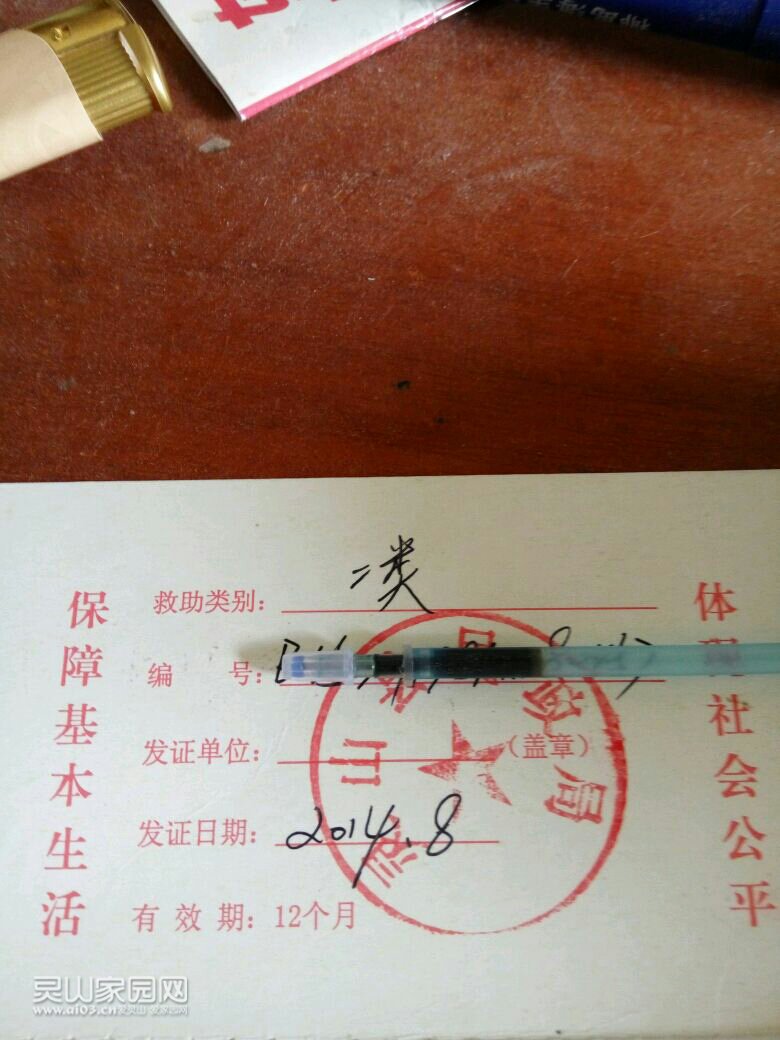 保障基本生活
救助类别：二类
编 号：
发证单位： （盖章）
发证日期：2014.8
有 效 期：12个月
体现社会公平
灵山家园网
www.qi03.cn